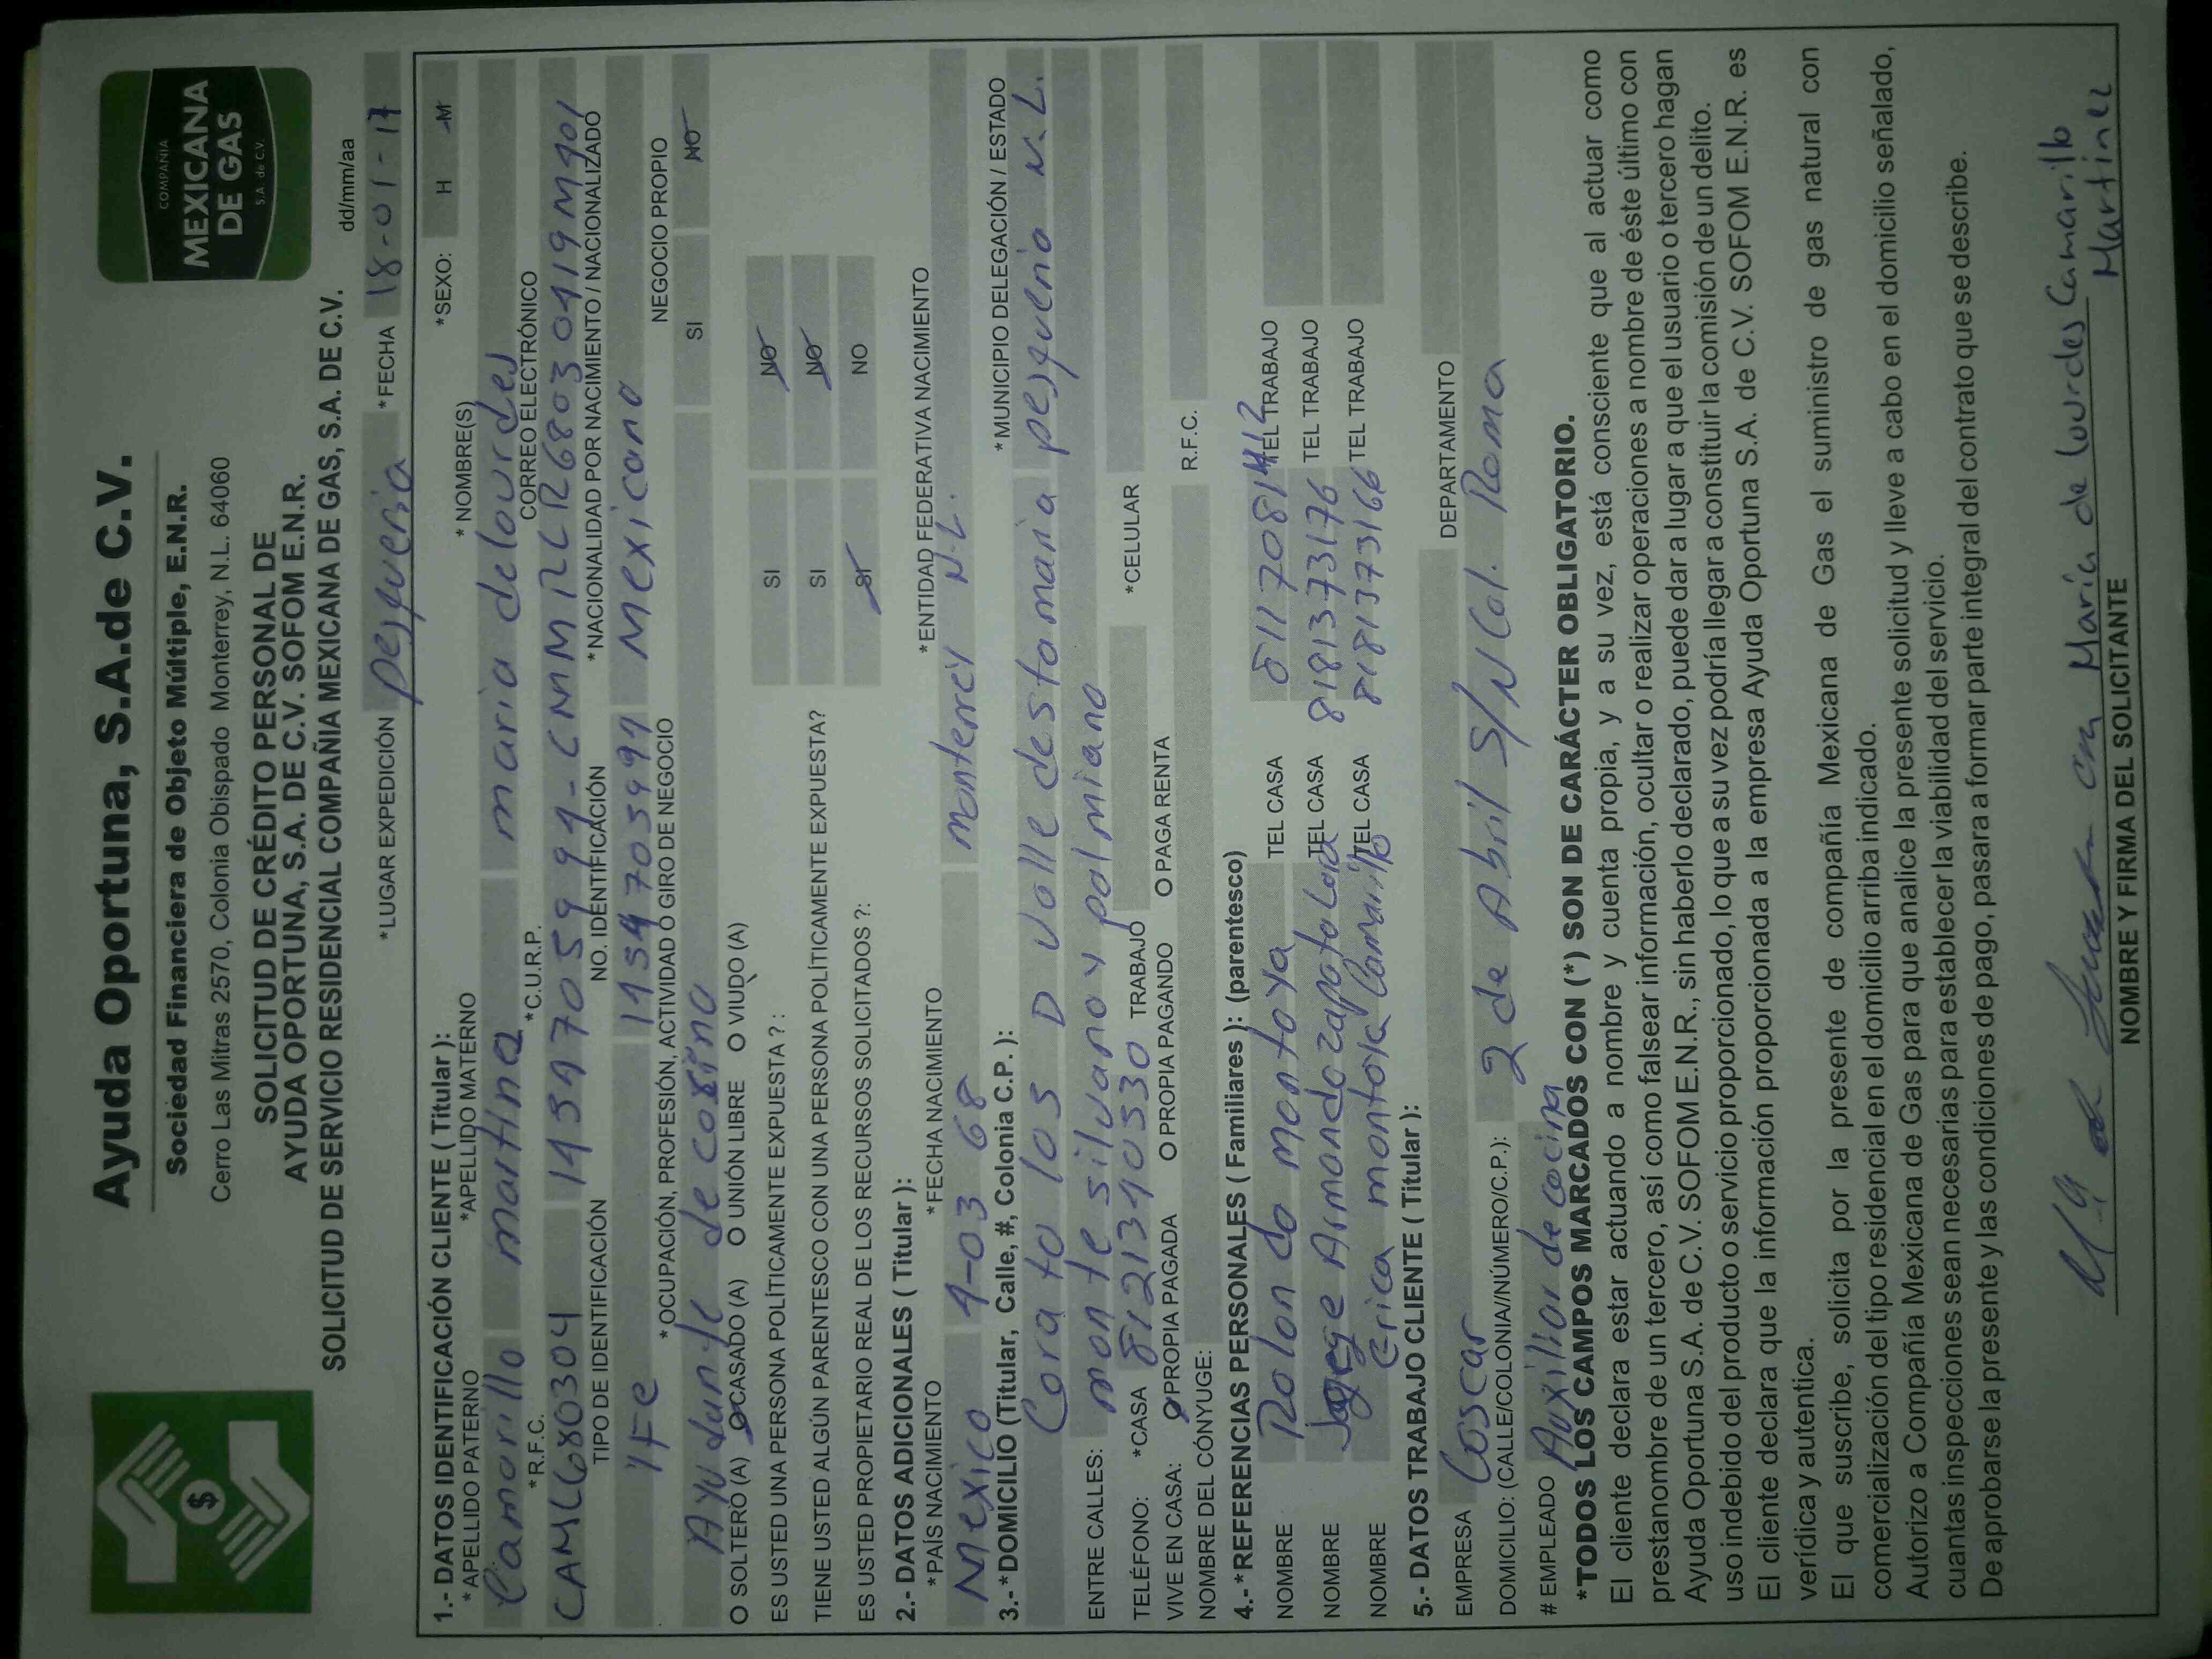 Ayuda Oportuna, S.A.de C.V.
Sociedad Financiera de Objeto Múltiple, E.N.R.
Cerro Las Mitras 2570, Colonia Obispado Monterrey, N.L. 64060
COMPAÑIA
MEXICANA
DE GAS
S.A. de C.V.
SOLICITUD DE CRÉDITO PERSONAL DE
AYUDA OPORTUNA, S.A. DE C.V. SOFOM E.N.R.
SOLICITUD DE SERVICIO RESIDENCIAL COMPAÑIA MEXICANA DE GAS, S.A. DE C.V.
dd/mm/aa
*LUGAR EXPEDICIÓN pesqueria *FECHA 18-01-17
1.- DATOS IDENTIFICACIÓN CLIENTE ( Titular ):
*SEXO: H M
* APELLIDO PATERNO *APELLIDO MATERNO * NOMBRE(S)
Camarillo martinez maria delourdes
*R.F.C. *C.U.R.P. CORREO ELECTRÓNICO
CAML680304
TIPO DE IDENTIFICACIÓN NO. IDENTIFICACIÓN *NACIONALIDAD POR NACIMIENTO / NACIONALIZADO
IFE mexicano
* OCUPACIÓN, PROFESIÓN, ACTIVIDAD O GIRO DE NEGOCIO NEGOCIO PROPIO
Ayudante de cosina SI NO
O SOLTERO (A) O CASADO (A) O UNIÓN LIBRE O VIUDO (A)
ES USTED UNA PERSONA POLÍTICAMENTE EXPUESTA ? : SI NO
TIENE USTED ALGÚN PARENTESCO CON UNA PERSONA POLÍTICAMENTE EXPUESTA? SI NO
ES USTED PROPIETARIO REAL DE LOS RECURSOS SOLICITADOS ?: SI NO
2.- DATOS ADICIONALES ( Titular ):
*PAÍS NACIMIENTO *FECHA NACIMIENTO *ENTIDAD FEDERATIVA NACIMIENTO
Mexico 4-03 68 monterrey N.L.
3.-*DOMICILIO (Titular, Calle, #, Colonia C.P. ): *MUNICIPIO DELEGACIÓN / ESTADO
Corato 103 D Valle destamaria pesquerio N.L.
ENTRE CALLES: monte silvano y palmiano
TELÉFONO: *CASA 8121340330 TRABAJO *CELULAR
VIVE EN CASA: O PROPIA PAGADA O PROPIA PAGANDO O PAGA RENTA
NOMBRE DEL CÓNYUGE: R.F.C.
4.-*REFERENCIAS PERSONALES ( Familiares ): (parentesco)
NOMBRE Rolando montoya TEL CASA TEL TRABAJO
NOMBRE Jorge Armando zapata TEL CASA 8181373176 TEL TRABAJO
NOMBRE Erica montoya Camarillo TEL CASA 8181373166 TEL TRABAJO
5.- DATOS TRABAJO CLIENTE ( Titular ):
EMPRESA Coscar DEPARTAMENTO
DOMICILIO: (CALLE/COLONIA/NÚMERO/C.P.): 2 de Abril S/N Col. Roma
# EMPLEADO Auxiliar de cocina
*TODOS LOS CAMPOS MARCADOS CON (*) SON DE CARÁCTER OBLIGATORIO.
El cliente declara estar actuando a nombre y cuenta propia, y a su vez, está consciente que al actuar como
prestanombre de un tercero, así como falsear información, ocultar o realizar operaciones a nombre de éste último con
Ayuda Oportuna S.A. de C.V. SOFOM E.N.R., sin haberlo declarado, puede dar a lugar a que el usuario o tercero hagan
uso indebido del producto o servicio proporcionado, lo que a su vez podría llegar a constituir la comisión de un delito.
El cliente declara que la información proporcionada a la empresa Ayuda Oportuna S.A. de C.V. SOFOM E.N.R. es
verídica y autentica.
El que suscribe, solicita por la presente de compañía Mexicana de Gas el suministro de gas natural con
comercialización del tipo residencial en el domicilio arriba indicado.
Autorizo a Compañía Mexicana de Gas para que analice la presente solicitud y lleve a cabo en el domicilio señalado,
cuantas inspecciones sean necesarias para establecer la viabilidad del servicio.
De aprobarse la presente y las condiciones de pago, pasara a formar parte integral del contrato que se describe.
María de lourdes Camarillo
Martínez
NOMBRE Y FIRMA DEL SOLICITANTE